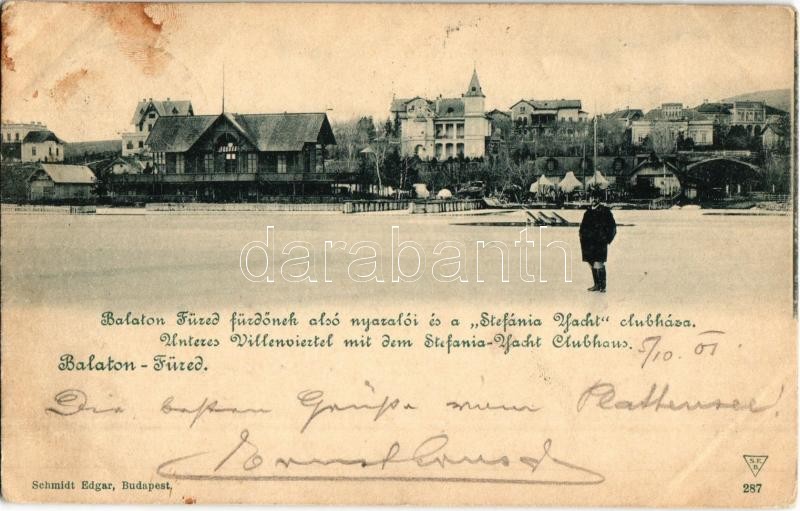 darabanth.com
Balaton Füred fürdőnek alsó nyaralói és a „Stefánia Yacht" clubháza.
Unteres Villenviertel mit dem Stefania-Yacht Clubhaus.
5/10. 01
Balaton-Füred.
Die besten Grüße vom Plattensee!
Ernst
Schmidt Edgar, Budapest.
S.E.
B.
287